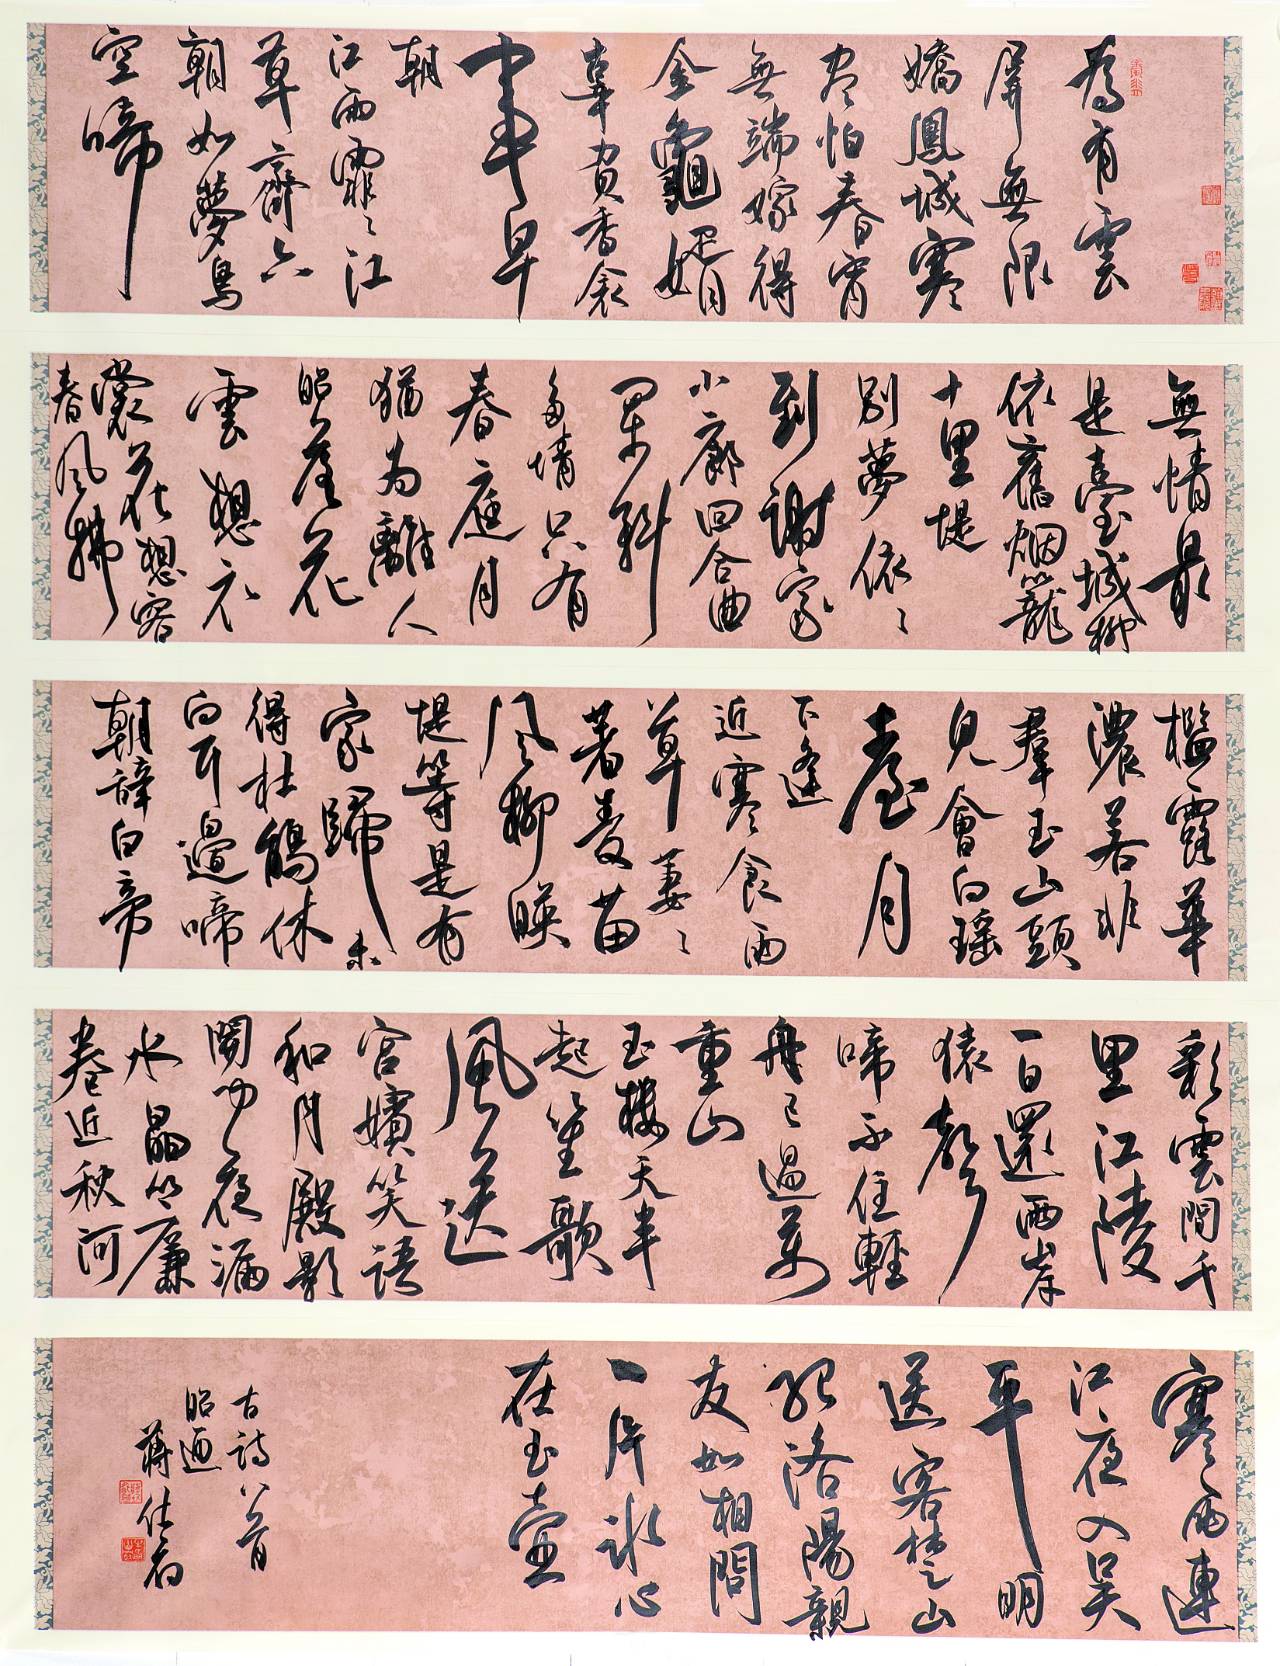 為有雲
屏無限
嬌鳳城寒
盡怕春宵
無端嫁得
金龜婿
辜負香衾
事早
朝
江雨霏〻江
草齊六
朝如夢鳥
空啼
無情最
是臺城柳
依舊烟籠
十里堤
別夢依〻
到謝家
小廊回合曲
闌斜
多情只有
春庭月
猶為離人
照落花
雲想衣
裳花想容
春風拂
檻露華
濃若非
群玉山頭
見會向瑤
臺月
下逢
近寒食雨
草萋〻
著麥苗
風柳映
堤等是有
家歸未
得杜鵑休
向耳邊啼
朝辭白帝
彩雲間千
里江陵
一日還兩岸
猿聲
啼不住輕
舟已過萬
重山
玉樓天半
起笙歌
風送
宮嬪笑語
和月殿影
開聞夜漏
水晶簾
卷近秋河
寒雨連
江夜入吳
平明
送客楚山
孤洛陽親
友如相問
一片冰心
在玉壺
古詩八首
昭迺
蔣仕